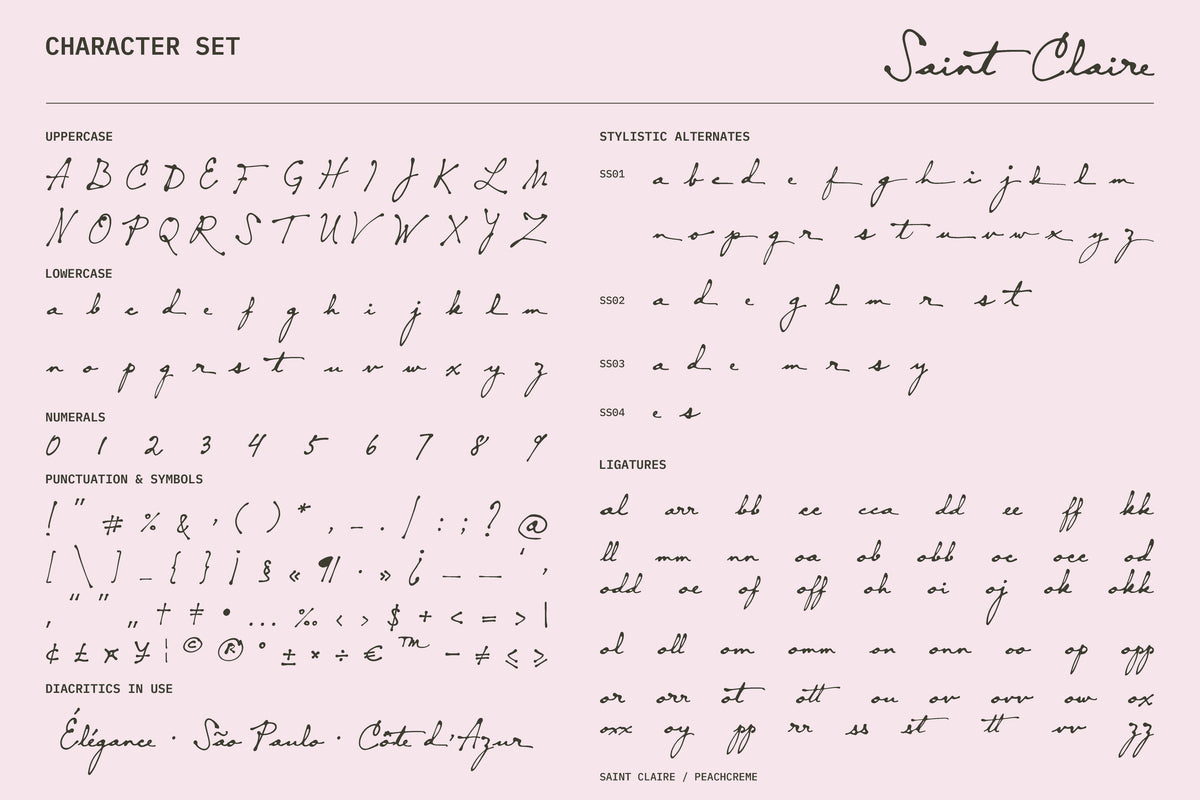 CHARACTER SET
Saint Claire
UPPERCASE
A B C D E F G H I J K L M
N O P Q R S T U V W X Y Z
LOWERCASE
a b c d e f g h i j k l m
n o p q r s t u v w x y z
NUMERALS
0 1 2 3 4 5 6 7 8 9
PUNCTUATION & SYMBOLS
! " # % & ' ( ) * , – . / : ; ? @
[ \ ] _ { } ¡ § « ¶ · » ¿ – — ‘ ’
‚ “ ” „ † ‡ • … ‰ ‹ › $ + < = > |
¢ £ ¤ ¥ ¦ © ® ° ± × ÷ € ™ − ≠ ≤ ≥
DIACRITICS IN USE
Élégance · São Paulo · Côte d'Azur
STYLISTIC ALTERNATES
SS01 a b c d e f g h i j k l m
n o p q r s t u v w x y z
SS02 a d e g l m r s t
SS03 a d e m r s y
SS04 e s
LIGATURES
al arr bb cc cca dd ee ff kk
ll mm nn oa ob obb oc occ od
odd oe of off oh oi oj ok okk
ol oll om omm on onn oo op opp
or orr ot ott ou ov ovv ow ox
oxx oy pp rr ss st tt vv zz
SAINT CLAIRE / PEACHCREME